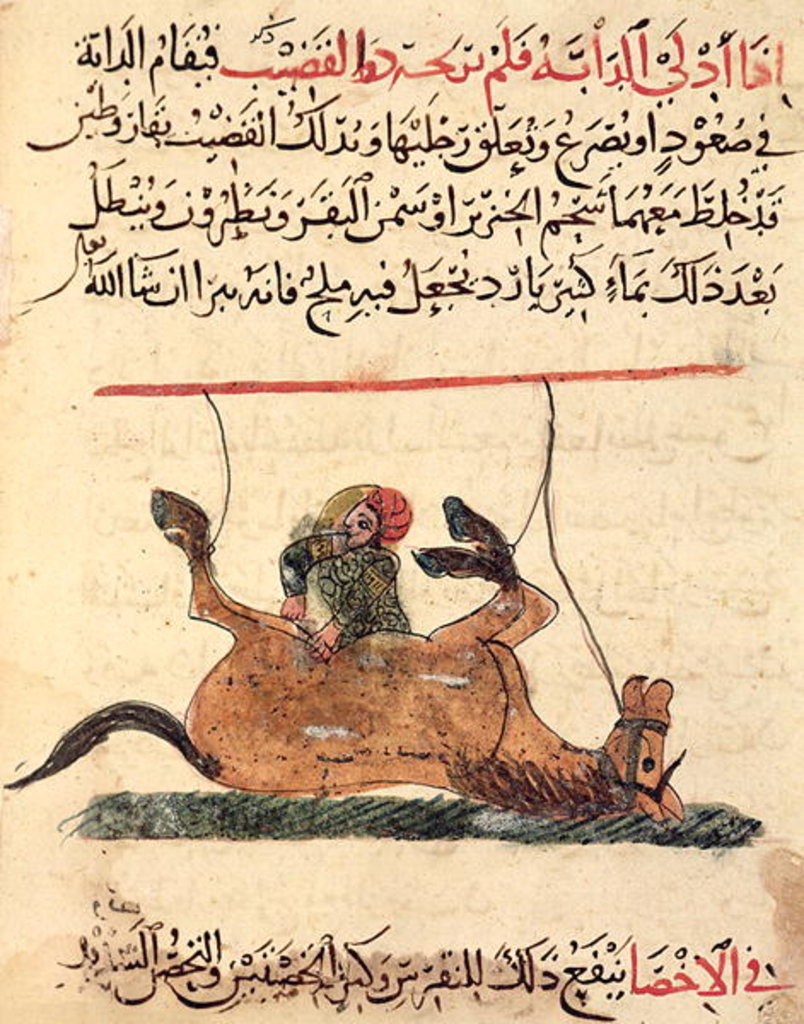 اذا أدلي الدابة فلم ترجعه ذكر القضيب فيقام الدابة
في صعود او يصرع وتعلق رجليها ويدلك القضيب بقار وطين
قد خلط معهما شحم الخنزير او سمن البقر ونطرون وينطل
بعد ذلك بماء كثير بارد يجعل فيه ملح فانه يبرا ان شا الله
في الاخصا ينفع ذلك للنقرس وكبر الخصيتين